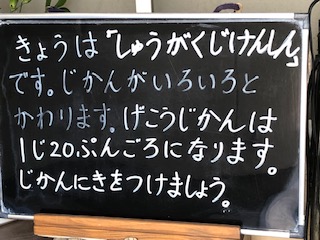 きょうは「しゅうがくじけんしん」
です。じかんがいろいろと
かわります。げこうじかんは
1じ20ぷんごろになります。
じかんにきをつけましょう。